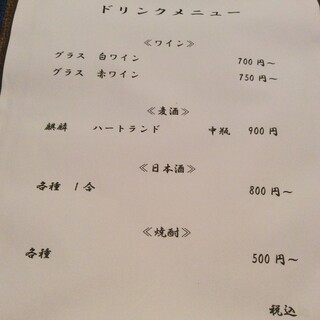 ドリンクメニュー
≪ワイン≫
グラス 白ワイン 700円～
グラス 赤ワイン 750円～
≪麦酒≫
麒麟 ハートランド 中瓶 900円
≪日本酒≫
各種 1合 800円～
≪焼酎≫
各種 500円～
税込